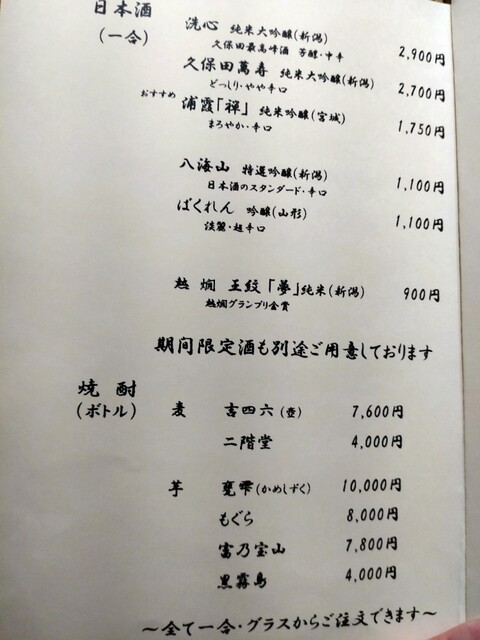 日本酒
(一合)
洗心 純米大吟醸(新潟) 2,900円
久保田最高峰酒 芳醇・中辛
久保田萬寿 純米大吟醸(新潟) 2,700円
どっしり・やや辛口
おすすめ 浦霞「禅」 純米吟醸(宮城) 1,750円
まろやか・辛口
八海山 特選吟醸(新潟) 1,100円
日本酒のスタンダード・辛口
ばくれん 吟醸(山形) 1,100円
淡麗・超辛口
越燗 王紋「夢」純米(新潟) 900円
越燗グランプリ金賞
期間限定酒も別途ご用意しております
焼酎
(ボトル)
麦 吉四六(壺) 7,600円
二階堂 4,000円
芋 甕雫(かめしずく) 10,000円
もぐら 8,000円
富乃宝山 7,800円
黒霧島 4,000円
～全て一合・グラスからご注文できます～